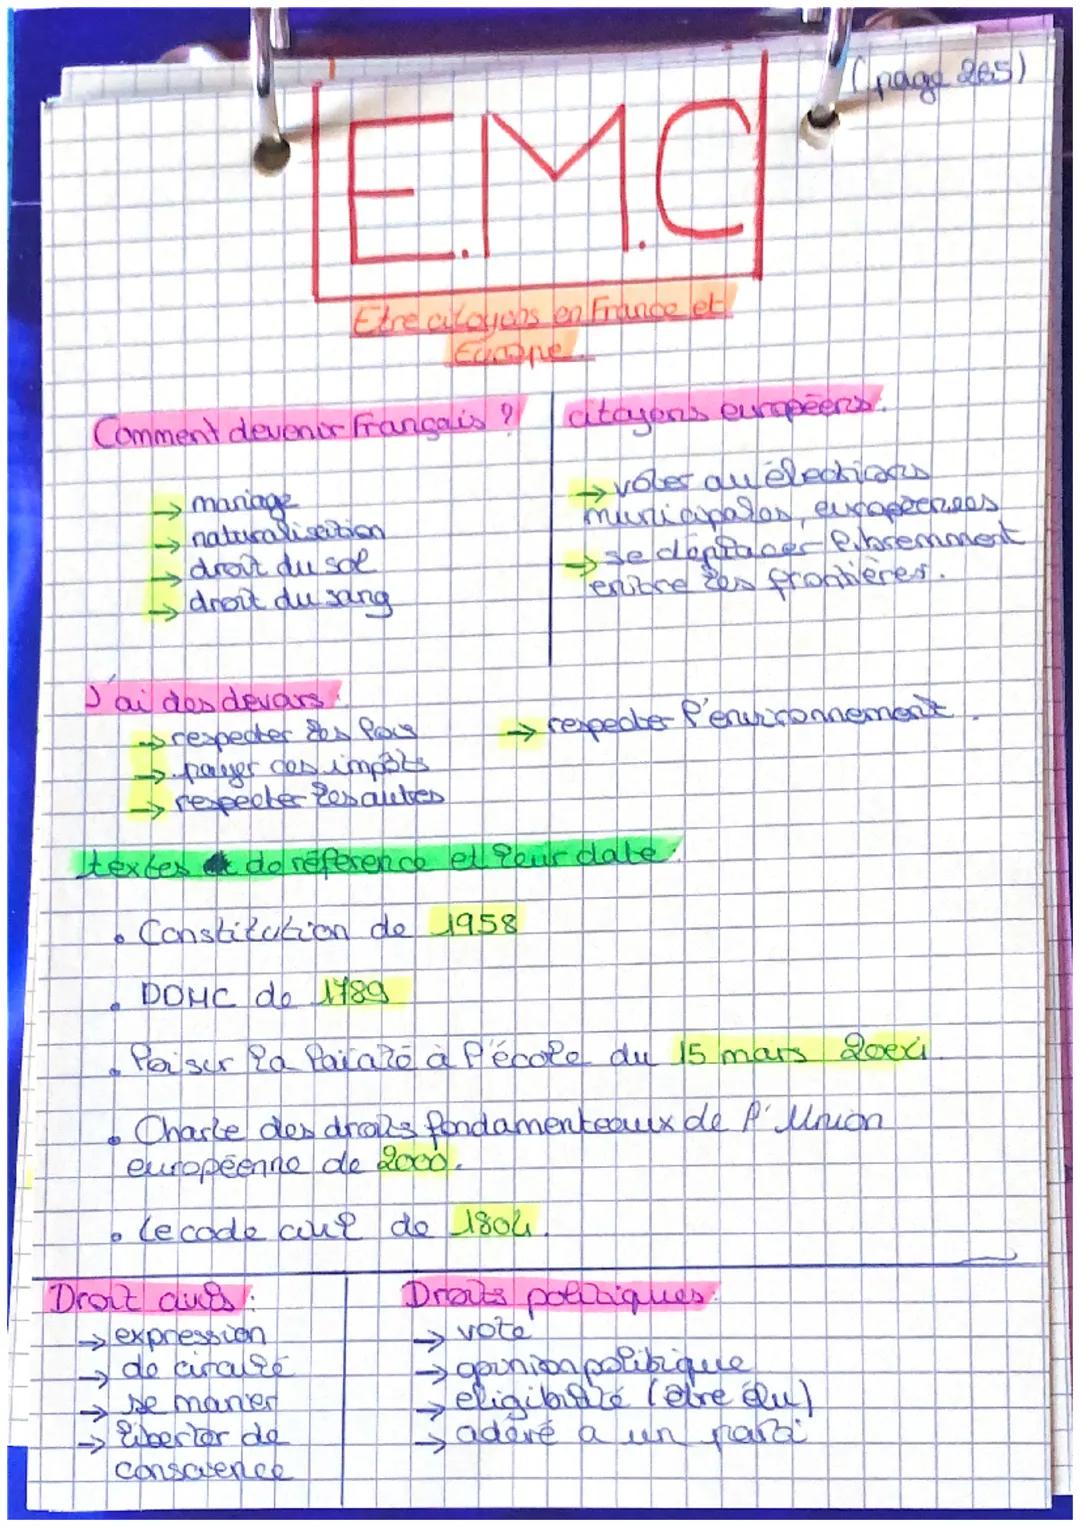 (page 265)
E.M.C
Etre citoyens en France et
Europe.
Comment devenir français ?
→ mariage
→ naturalisation
→ droit du sol
→ droit du sang
citoyens européens :
→ voter au élections
municipales, européenees
→ se déplacer libremment
entre les frontières.
J'ai des devoirs :
→ respecter les lois
→ payer des impôts
→ respecter les autres
→ respecter l'environnement.
textes de réference et leur date :
• Constitution de 1958
• DDHC de 1789
• loi sur la laïcité à l'école du 15 mars
• Charte des droits fondamenteaux de l'Union
européenne de 2000.
• Le code civil de 1804.
Droit civils :
→ expression
→ de circulé
→ se marier
→ liberter de
conscience
Droits politiques :
→ vote
→ opinion politique
→ eligibilité (être élu)
→ adéré a un parti